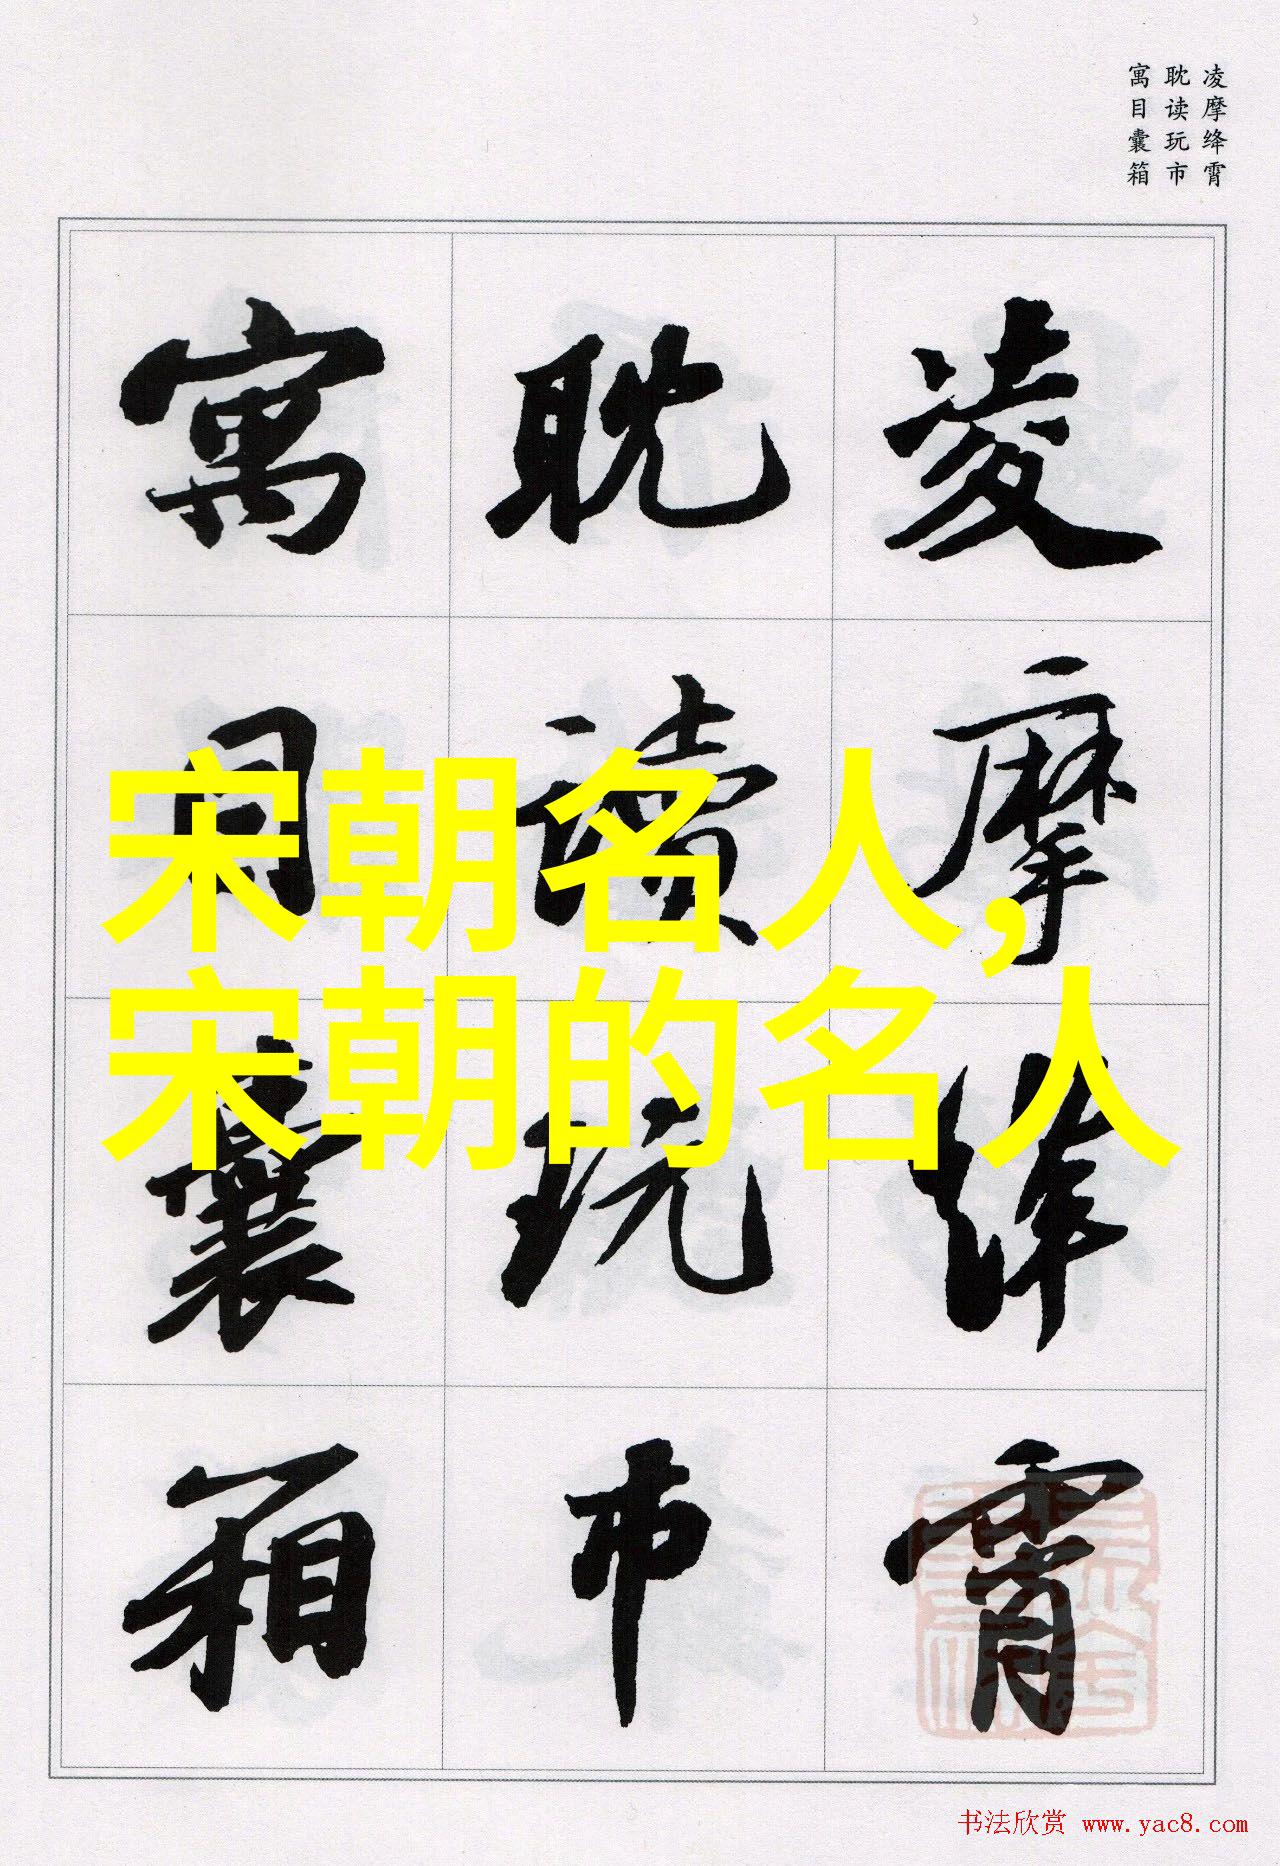 凌摩绛霄
耽读玩市
寓目囊箱
凌摩绛霄
耽读玩市
寓目囊箱
宋朝名人,
宋朝的名人
书法欣赏 www.yac8.com